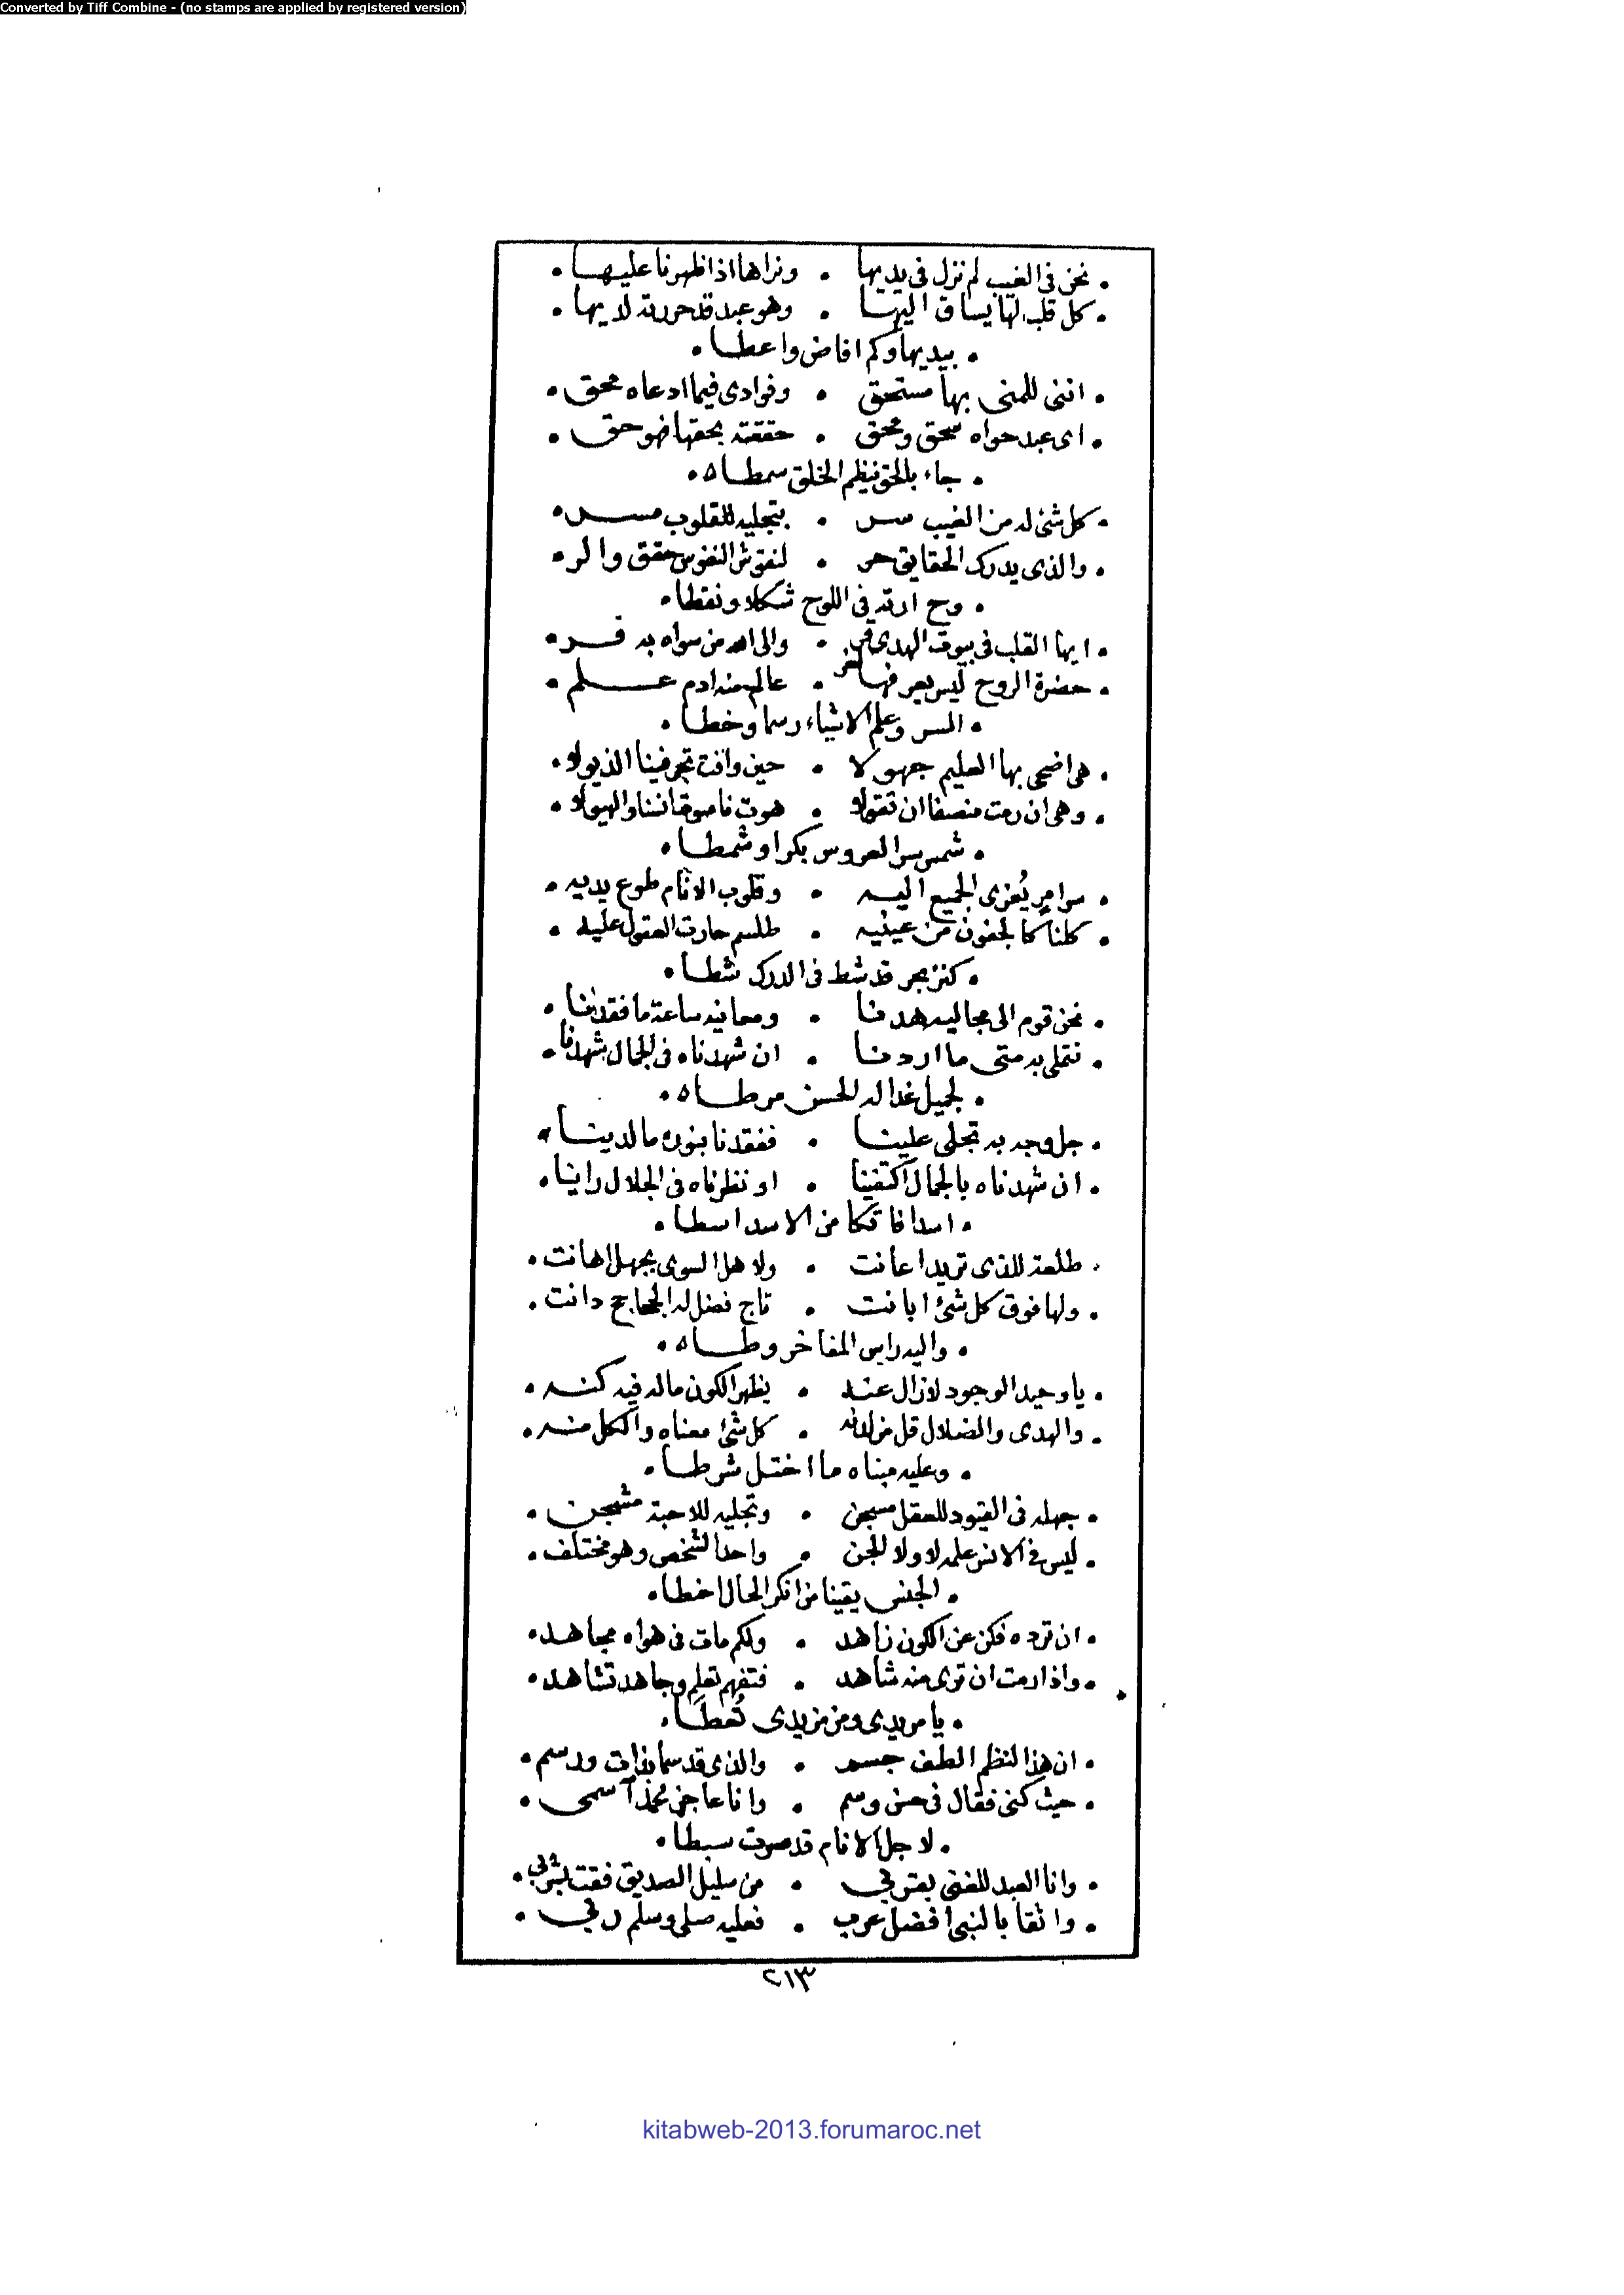 Converted by Tiff Combine - (no stamps are applied by registered version)
• نحن في الغيب لم نزل في يديها • ونراها اذا ظهرنا عليها •
• كل قلب لها يساق اليها • وهو عبد قد حررته لديها •
• بيديها وكم افاض واعطا •
• انني للمنى بها مستحق • وفوادى فيما ادعاه محق •
• اى عبد حواه سحق ومحق • حققته بحقها فهو حق •
• جاء بالحق نيظم الخلق سمطا •
• كل شئ له من الغيب سر • بتجليه للقلوب مسر •
• والذى يدرك الحقايق حر • لنقوش النفوس حقق والر •
• وح ارته في اللوح شكلا ونقطا •
• ايها القلب في بيوت الهدى قر • والى الله من سواه به فر •
• حضرة الروح ليس يعرفها • عالم منه ادم علم •
• السر وعلم الاشياء رسما وخطا •
• هى اضحى بها العليم جهولا • حين وافت تجر فينا الذيولا •
• وهى ان رمت منصفا ان تقولا • هوت ناسوتنا والهيولا •
• شمس سر العروس بكرا وشمطا •
• سر امرٍ يُعزى الجميع اليه • وقلوب الانام طوع يديه •
• كلنا كالجفون من عينيه • طلسم حارت العقول عليه •
• كنز بحر قد شط في الدرك شطا •
• نحن قوم الى مجاليه هدنا • ومعانيه ساعة ما فقدنا •
• نتملى به متى ما اردنا • ان شهدناه في الجمال شهدنا •
• لجميل غدا له الحسن مرطا •
• جل وجه به تجلى علينا • ففقدنا بنوره ما لدينا •
• ان شهدناه بالجمال اكتفينا • او نظرناه في الجلال راينا •
• اسدا فاتكا من الاسد اسطا •
• طلعة للذى تريد اعانت • ولاهل السوى بجهل اهانت •
• ولها فوق كل شئ ابانت • تاج فضل له الجحاجح دانت •
• واليه راس المفاخر وطا •
• يا وحيد الوجود لازال عنه • يظهر الكون ماله فيه كنه •
• والهدى والضلال قل من لدنه • كل شئ معناه والكل منه •
• وعليه مبناه ما اختل شرطا •
• جهله في القيود للعقل مسجن • وتجليه للاحبة مشجن •
• ليس في الانس علمه لا ولا الجن • واحد الشخص وهو مختلف •
• الجنس يقينا من انكر الحال اخطا •
• ان ترده فكن عن الكون زاهد • ولكم مات في هواه مجاهد •
• واذا رمت ان ترى منه شاهد • فتفهم تعلم وجاهد تشاهد •
• يا مريدى ومن مزيدى تُعطَا •
• ان هذا النظم الطف جسم • والذى قد سما بذات ورسم •
• حيث كنى فقال في حسن وسم • وانا عاجز محمد آسمى •
• لاجل الانام قد صرت سبطا •
• وانا العبد للغنى بقربي • من سليل الصديق فقت بشربي •
• واثقا بالنبى افضل عرب • فعليه صلى وسلم ربي •
٢١٣
kitabweb-2013.forumaroc.net